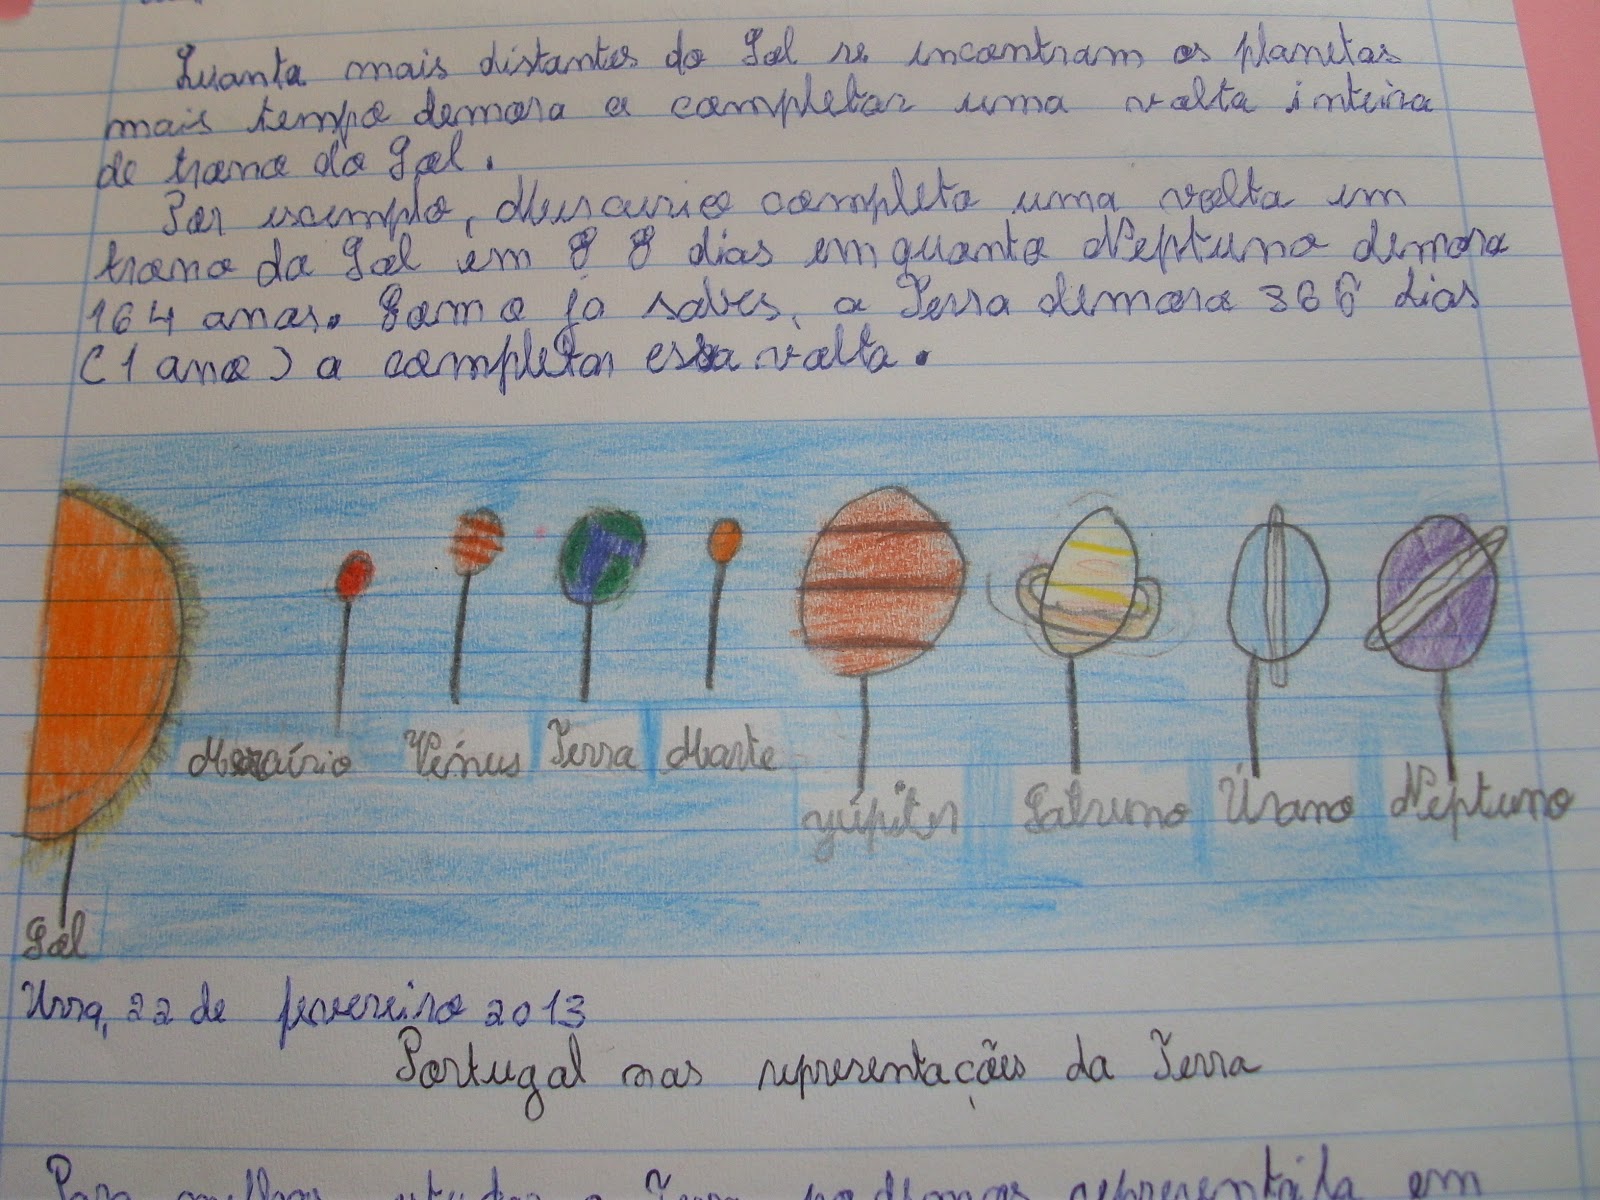 Quanto mais distantes do Sol se encontram os planetas
mais tempo demora a completar uma volta inteira
de torno do Sol.
Por exemplo, Mercurio completa uma volta em
torno do Sol em 88 dias enquanto Neptuno demora
164 anos. Como já sabes, a Terra demora 366 dias
(1 ano) a completar essa volta.
Mercúrio Vénus Terra Marte
yúpiter Saturno Úrano Neptuno
Sol
Urra, 22 de fevereiro 2013
Portugal nas representações da Terra
Para melhor estudar a Terra podemos representá-la em